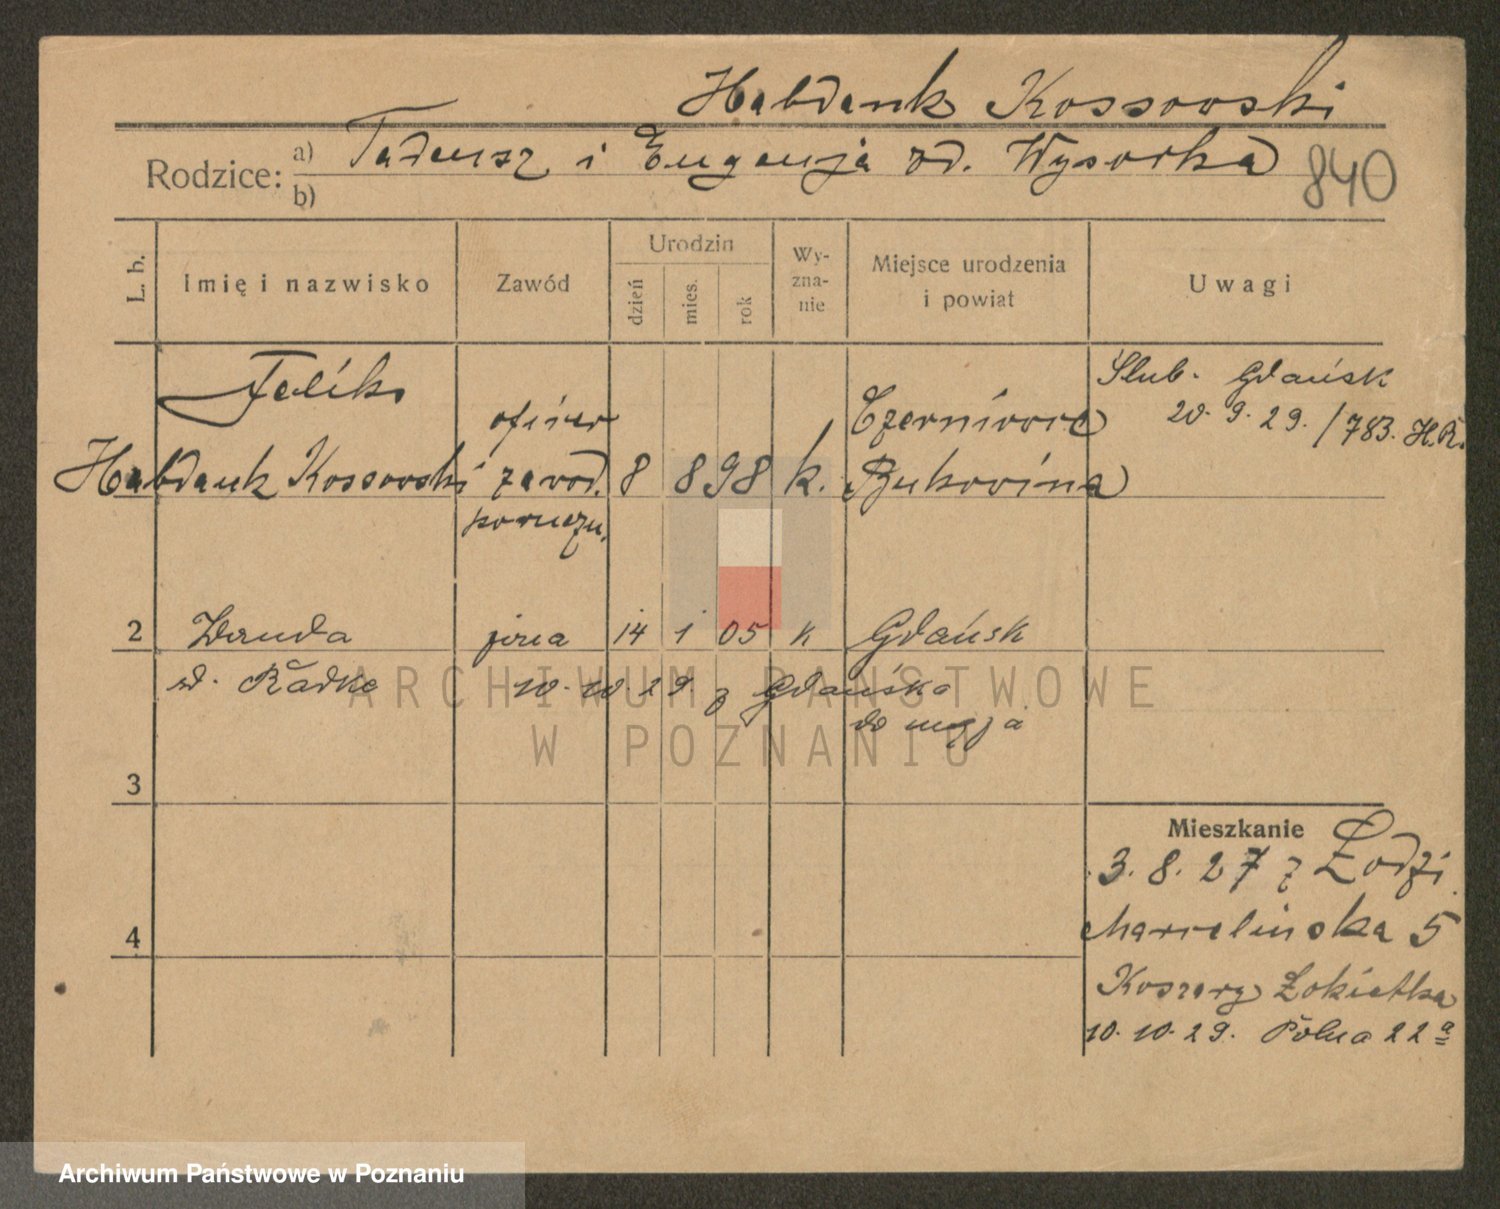 Habdank Kossowski
Rodzice: a) Tadeusz i Eugenja zd. Wysocka
b)
840
L. b.
Imię i nazwisko
Zawód
Urodzin
dzień
mies.
rok
Wy-
zna-
nie
Miejsce urodzenia
i powiat
Uwagi
Feliks
Habdank Kossowski
oficer
zawod.
poruczn.
8 8 98 k.
Czerniowce
Bukowina
Ślub. Gdańsk
20. 9. 29. / 783. H.R.
2 Wanda żona 14 1 05 k Gdańsk
zd. Radke 10. 10. 29. z Gdańska
do męża
3
4
Mieszkanie
3. 8. 27 z Łodzi
Marcelinska 5
Koszary Łokietka
10. 10. 29. Polna 22 a
ARCHIWUM PAŃSTWOWE
W POZNANIU
Archiwum Państwowe w Poznaniu